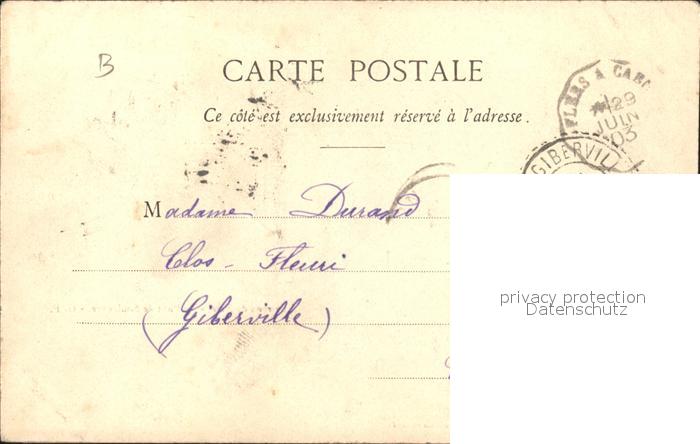 B
CARTE POSTALE
Ce côté est exclusivement réservé à l'adresse.
FLERS A
29
JUIN
03
GIBERVIL
Madame Durand
Clos - Fleuri
(Giberville)
privacy protection
Datenschutz